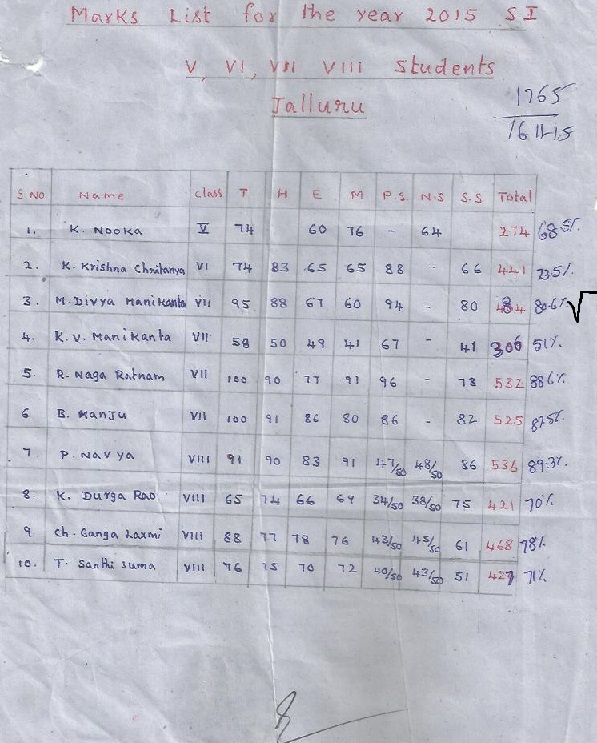 Marks List for the year 2015 S I
V, VI, VII VIII Students
Jalluru
1765
16-11-15
S.NO Name class T H E M P.S. N.S S.S Total
1. K. Nooka V 74 60 76 - 64 274 68.5%
2. K. Krishna Chaitanya VI 74 83 65 65 88 - 66 441 73.5%
3. M. Divya Manikanta VII 95 88 67 60 94 - 80 484 80.6%
4. K. V. Manikanta VII 58 50 49 41 67 - 41 306 51%
5 R. Naga Ratnam VII 100 90 77 91 96 - 78 532 88.6%
6 B. Manju VII 100 91 86 80 86 - 82 525 87.5%
7 P. Navya VIII 91 90 83 91 47/50 48/50 86 536 89.3%
8 K. Durga Rao VIII 65 74 66 69 34/50 38/50 75 421 70%
9 Ch. Ganga Laxmi VIII 88 77 78 76 43/50 45/50 61 468 78%
10. T. Santhi Suma VIII 76 75 70 72 40/50 43/50 51 427 71%